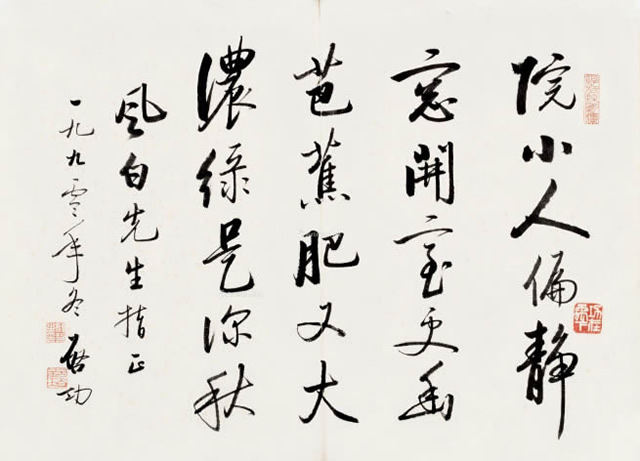 院小人偏静
窓開室更幽
芭蕉肥又大
濃緑是深秋
風白先生指正
一九九零年冬
啓功